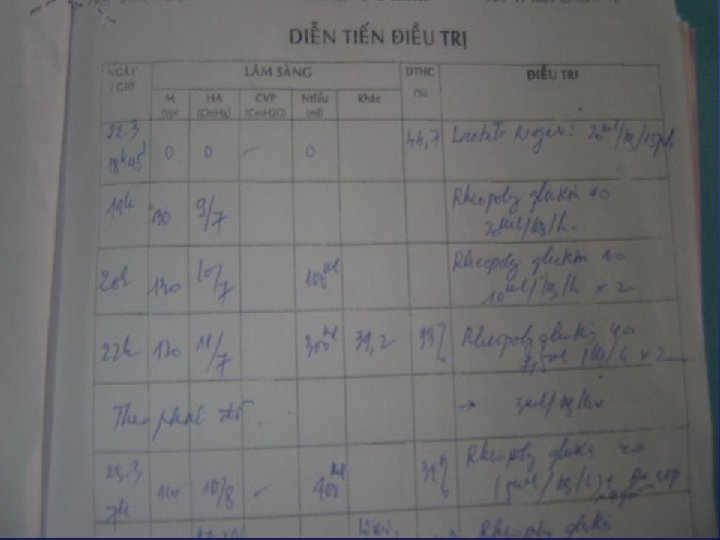 DIỄN TIẾN ĐIỀU TRỊ
NGÀY / GIỜ LÂM SÀNG DTHC (%) ĐIỀU TRỊ
M HA CVP Ntiểu Khác
(CmHg) (CmH2O) (ml)
22.3 18h45' 0 0 – 0 44,7 Lactate Ringer: 20ml/kg/15ph
19h 130 9/7 Rheopoly glukin 40
20ml/kg/h.
20h 130 10/7 100ml Rheopoly glukin 40
10ml/kg/h x 2
22h 120 11/7 300ml 39,2 33% Rheopoly glukin 40
7,5ml/kg/h x 2
Theo phác đồ. → 5ml/kg/h
23.3 7h 110 10/8 – 400ml Rheopoly glukin 40
(5ml/kg/h) CVP
Rheopoly glukin